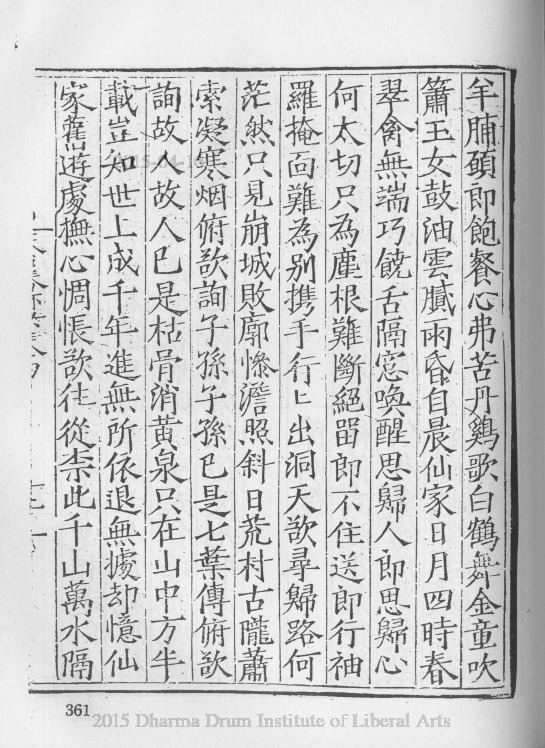 羊脯頭即飽餐心弗苦丹鷄歌白鶴舞金童吹
簫玉女鼓油雲膩雨昏自晨仙家日月四時春
翠禽無端巧饒舌隔窓喚醒思歸人郎思歸心
何太切只為塵根難斷絕留郎不住送郎行袖
羅掩面難為別携手行〻出洞天欲尋歸路何
茫然只見崩城敗廓慘澹照斜日荒村古隴蕭
索凝寒烟俯欲詢子孫子孫已是七葉傳俯欲
詢故人故人已是枯骨消黄泉只在山中方半
載豈知世上成千年進無所依退無據却憶仙
家舊遊處撫心惆悵欲徃從柰此千山萬水隔
361
2015 Dharma Drum Institute of Liberal Arts